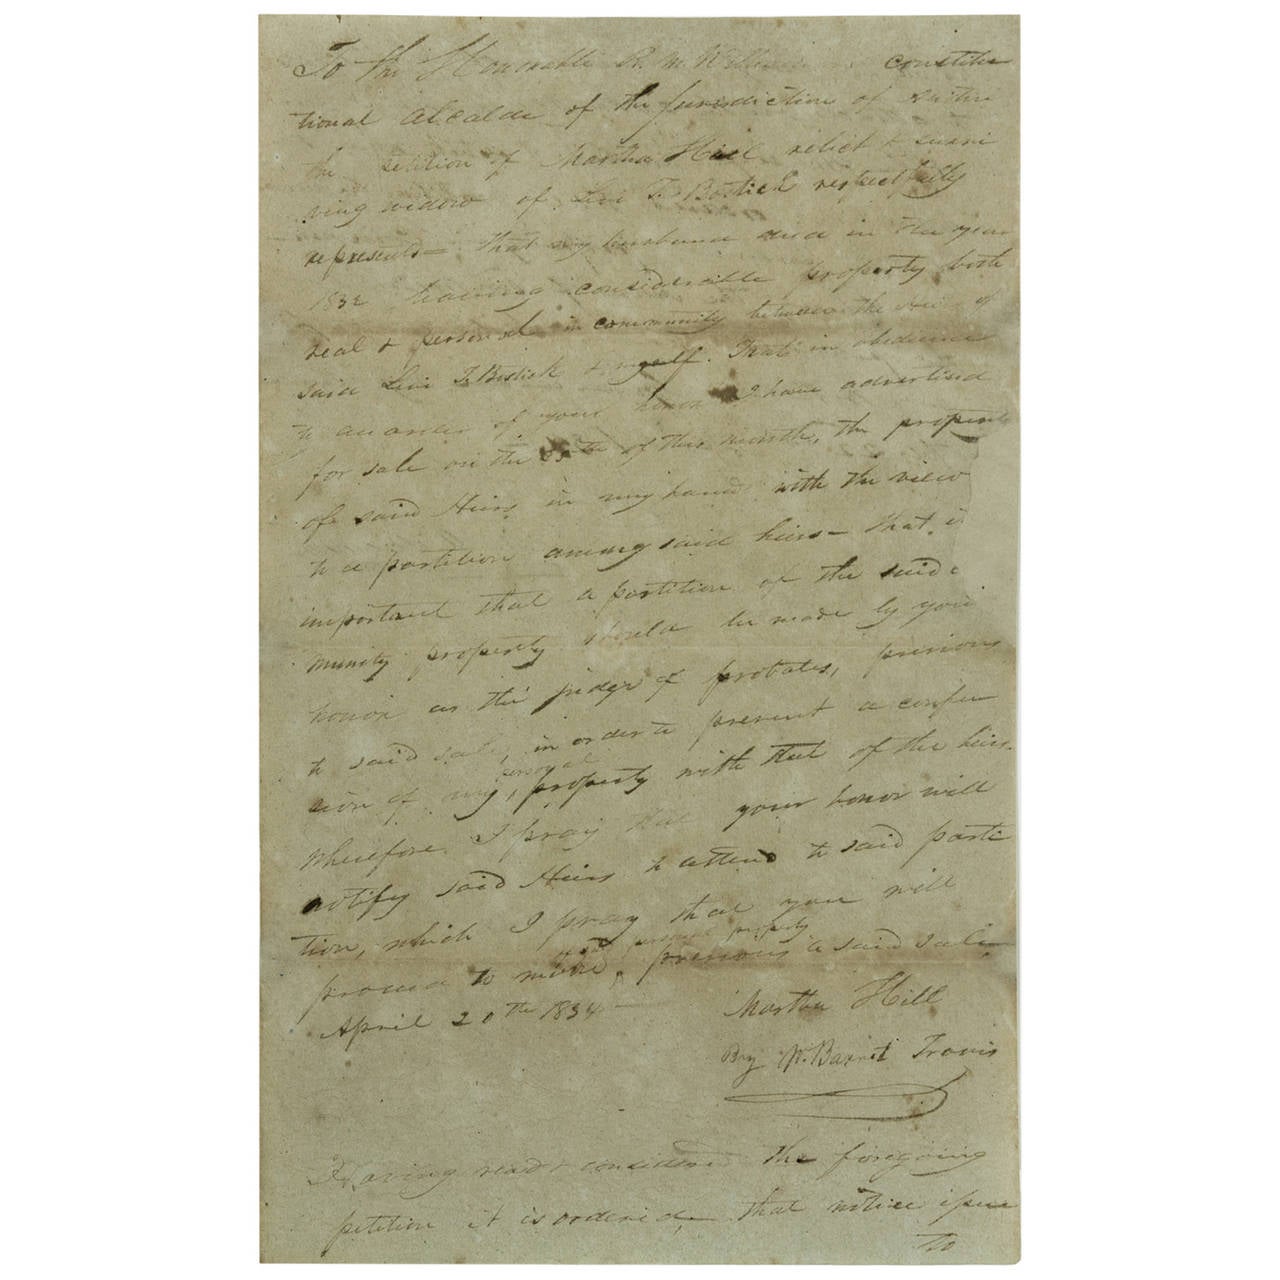 To the Honorable R. M. Will constitu
tional alcalde of the Jurisdiction of Austin
the petition of Martha Hill relict & survi
ving widow of Levi T. Bostick respectfully
represents— that my husband died in the year
1832 having considerable property both
real & personal in community between the Heirs of
said Levi T. Bostick & myself. That in obedience
to an order of your honor I have advertised
for sale on the 25th of this month, the property
of said Heirs in my hands with the view
to a partition among said heirs— that it
important that a partition of the said c
munity property should be made by your
honor as the judge of probates, previous
to said sale, in order to prevent a confu
sion of my personal property with that of the heirs.
Wherefore I pray that your honor will
notify said Heirs to attend to said parti
tion, which I pray that you will
of said personal property
proceed to make, previous to said sale—
April 20th 1834—
Martha Hill
By W. Barret Travis
Having read & considered the foregoing
petition it is ordered that notice issue
to